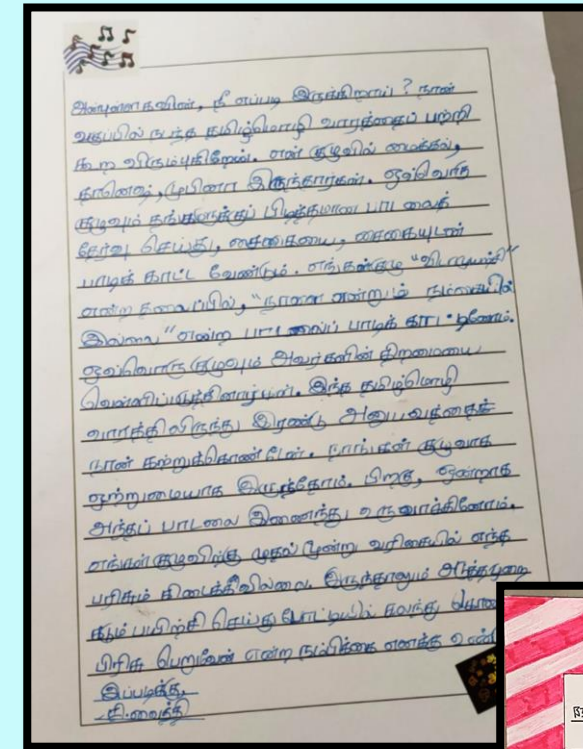 அன்புள்ள கவின், நீ எப்படி இருக்கிறாய்? நான்
வகுப்பில் நடந்த தமிழ்மொழி வாரத்தைப் பற்றி
கூற விரும்புகிறேன். என் குழுவில் மைக்கல்,
இருந்தார்கள். ஒவ்வொரு
குழுவும் தங்களுக்குப் பிடித்தமான பாடலைத்
தேர்வு செய்து, சைகையுடன்
பாடிக் காட்ட வேண்டும். எங்கள் குழு "விடாமுயற்சி"
என்ற தலைப்பில், "நாளை என்றும் நம் கையில்
இல்லை" என்ற பாடலைப் பாடிக் காட்டினோம்.
ஒவ்வொரு குழுவும் அவர்களின் திறமையை
வெளிப்படுத்தினார்கள். இந்த தமிழ்மொழி
வாரத்திலிருந்து இரண்டு அனுபவத்தைக்
நான் கற்றுக்கொண்டேன். நாங்கள் குழுவாக
ஒற்றுமையாக இருந்தோம். பிறகு, ஒன்றாக
அந்தப் பாடலை இணைந்து உருவாக்கினோம்.
எங்கள் குழுவிற்கு முதல் மூன்று வரிசையில் எந்த
பரிசும் கிடைக்கவில்லை. இருந்தாலும் அடுத்தமுறை
பயிற்சி செய்து போட்டியில் கலந்து
பரிசு பெறுவேன் என்ற நம்பிக்கை எனக்கு
இப்படிக்கு,